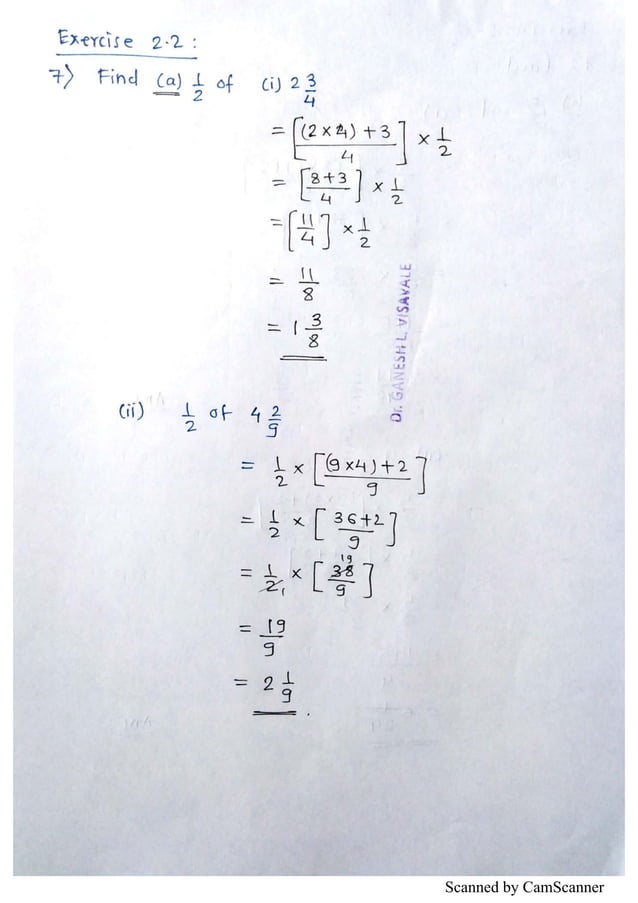 Exercise 2.2 :
7) Find (a) 1/2 of (i) 2 3/4
= [((2 × 4) + 3)/4] × 1/2
= [(8+3)/4] × 1/2
= [11/4] × 1/2
= 11/8
= 1 3/8
Dr. GANESH L. VISAVALE
(ii) 1/2 of 4 2/9
= 1/2 × [((9 ×4) + 2)/9]
= 1/2 × [(36+2)/9]
19
= 1/2 1 × [38/9]
= 19/9
= 2 1/9 .
Scanned by CamScanner